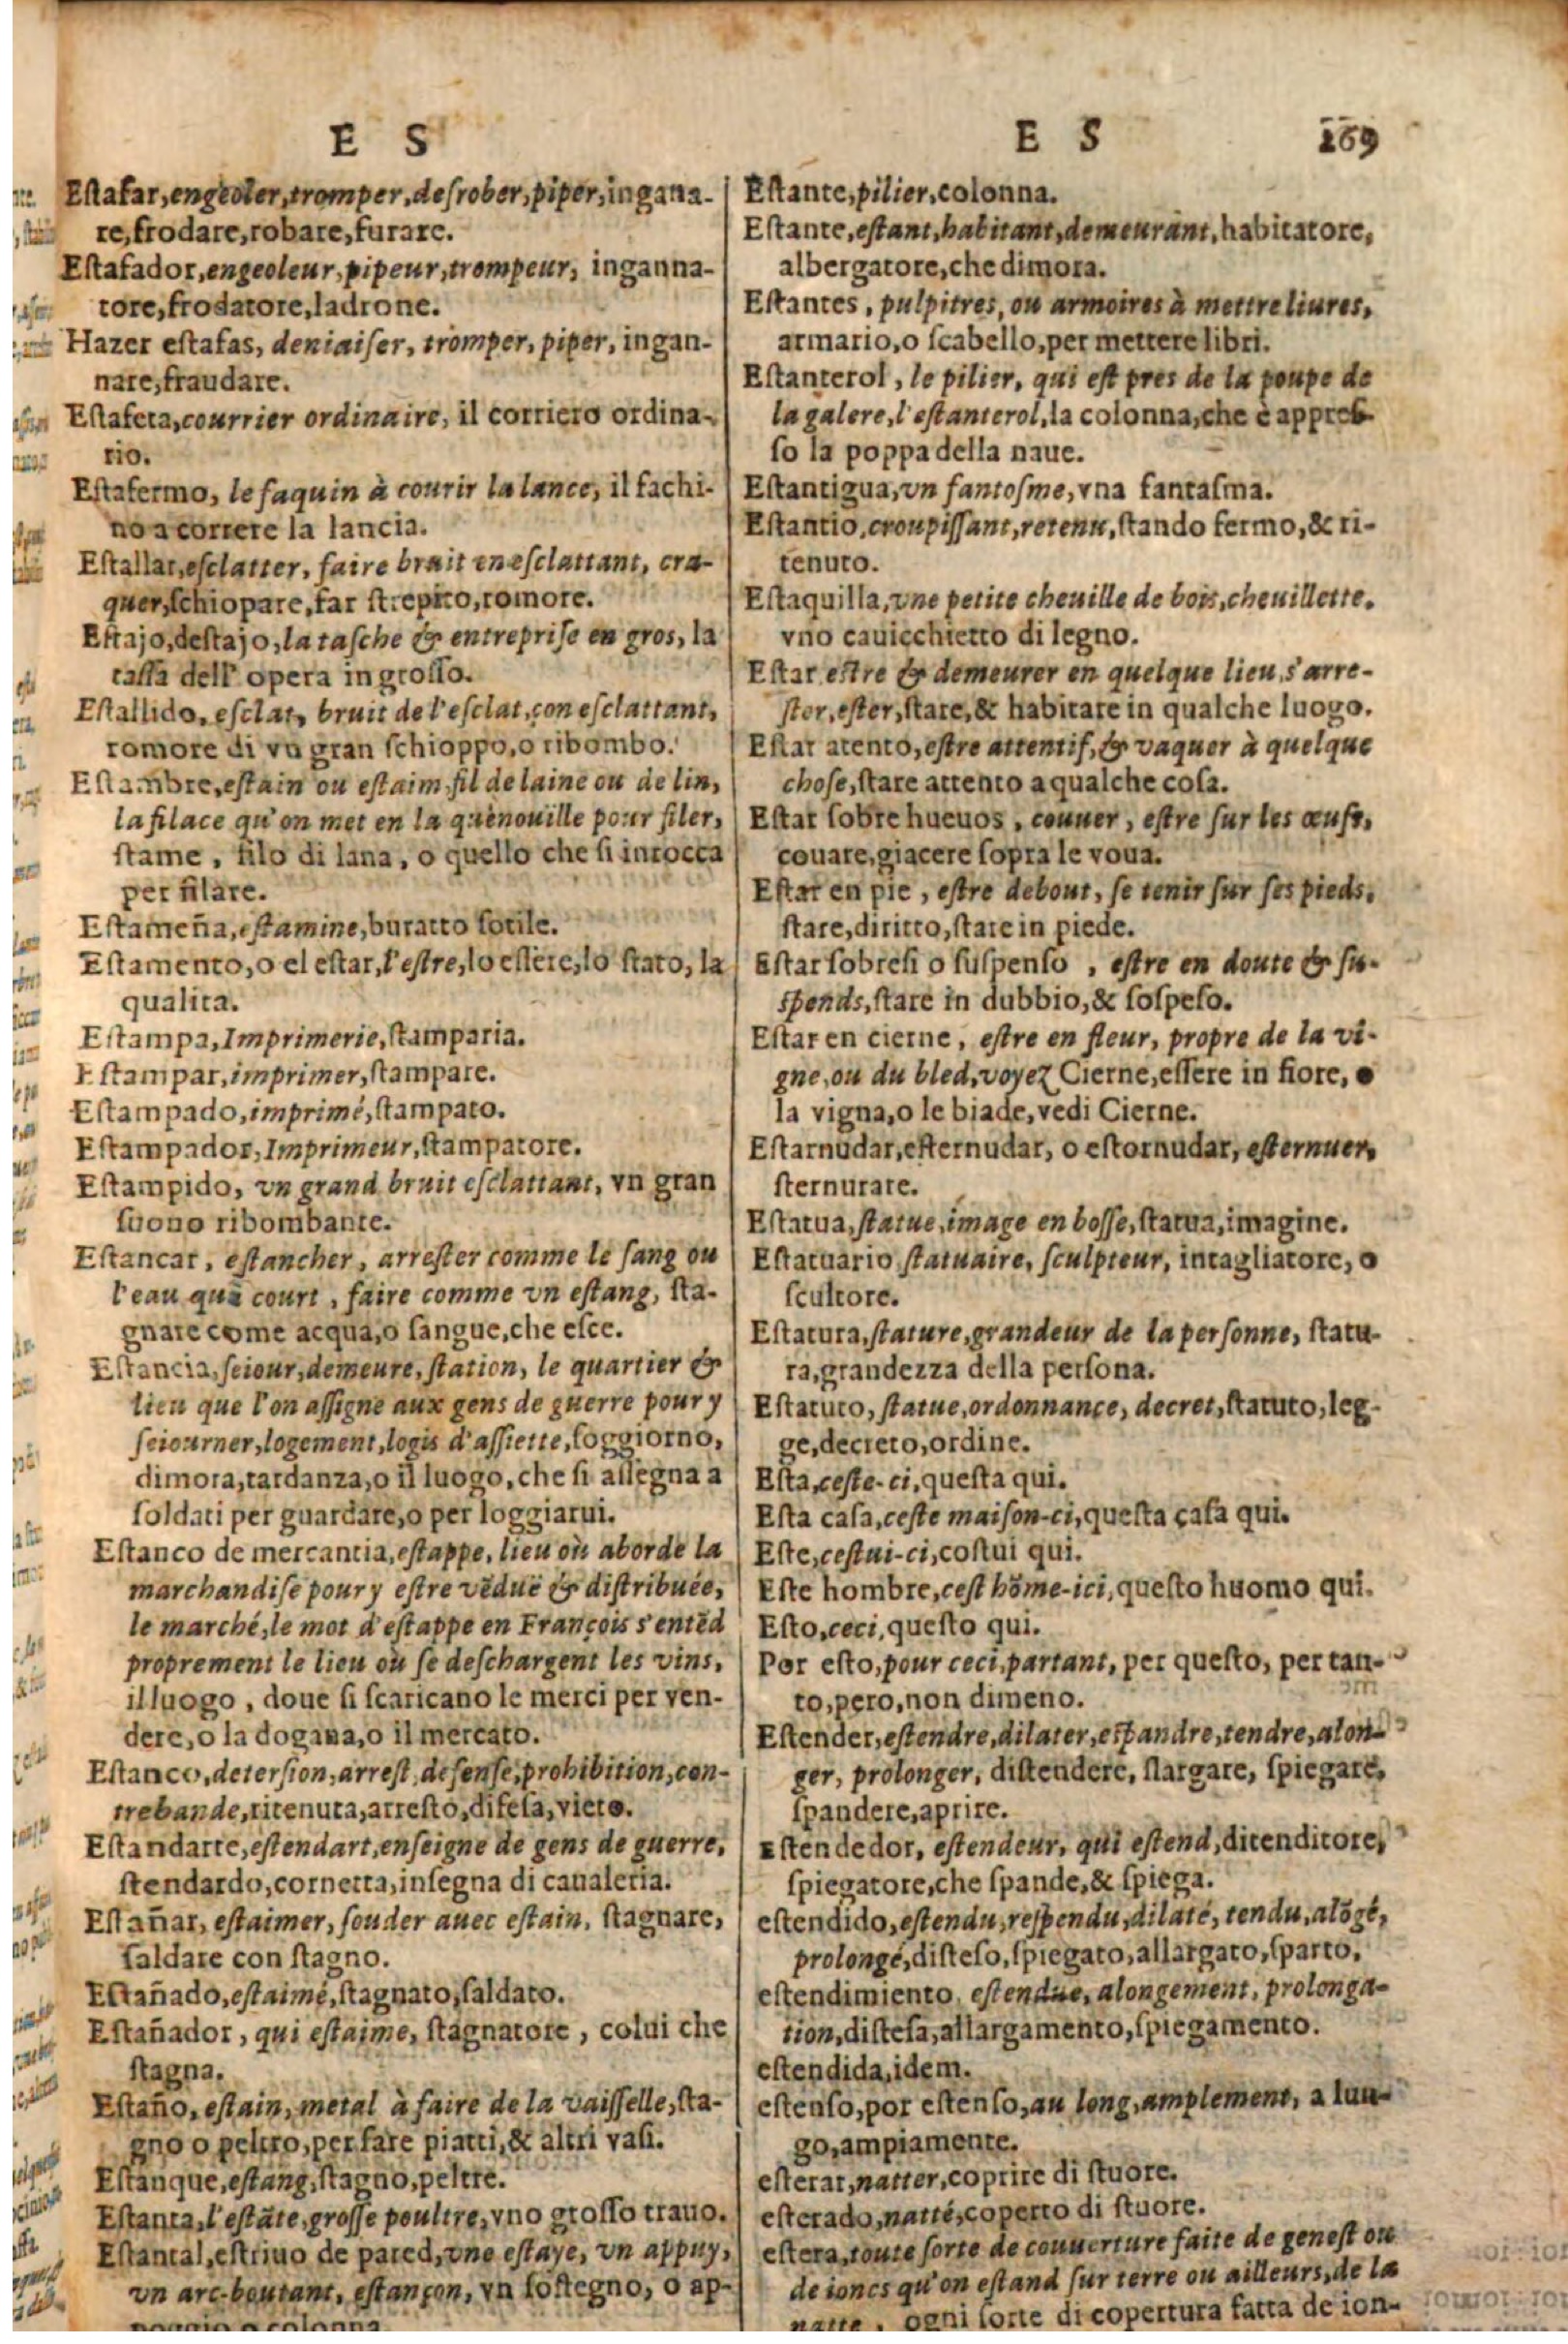 E S
Eſtafar, engeoler, tromper, deſrober, piper, ingana-
re, frodare, robare, furare.
Eſtafador, engeoleur, pipeur, trompeur, inganna-
tore, frodatore, ladrone.
Hazer eſtafas, deniaiſer, tromper, piper, ingan-
nare, fraudare.
Eſtafeta, courrier ordinaire, il corriero ordina-
rio.
Eſtafermo, le faquin à courir la lance, il fachi-
no a correre la lancia.
Eſtallar, eſclatter, faire bruit en eſclattant, cra-
quer, ſchiopare, far ſtrepito, romore.
Eſtajo, deſtajo, la taſche & entrepriſe en gros, la
taſſa dell' opera in groſſo.
Eſtallido, eſclat, bruit de l'eſclat, ſon eſclattant,
romore di vn gran ſchioppo, o ribombo.
Eſtambre, eſtain ou eſtaim, fil de laine ou de lin,
la filace qu'on met en la quènoüille pour filer,
ſtame, filo di lana, o quello che ſi intocca
per filare.
Eſtameña, eſtamine, buratto ſotile.
Eſtamento, o el eſtar, l'eſtre, lo eſſere, lo ſtato, la
qualita.
Eſtampa, Imprimerie, ſtamparia.
Eſtampar, imprimer, ſtampare.
Eſtampado, imprimé, ſtampato.
Eſtampador, Imprimeur, ſtampatore.
Eſtampido, vn grand bruit eſclattant, vn gran
ſuono ribombante.
Eſtancar, eſtancher, arreſter comme le ſang ou
l'eau qui court, faire comme vn eſtang, ſta-
gnare come acqua, o ſangue, che eſce.
Eſtancia, ſeiour, demeure, ſtation, le quartier &
lieu que l'on aſſigne aux gens de guerre pour y
ſeiourner, logement, logis d'aſſiette, ſoggiorno,
dimora, tardanza, o il luogo, che ſi aſſegna a
ſoldati per guardare, o per loggiarui.
Eſtanco de mercantia, eſtappe, lieu où aborde la
marchandiſe pour y eſtre vẽduë & diſtribuée,
le marché, le mot d'eſtappe en François s'entẽd
proprement le lieu où ſe deſchargent les vins,
il luogo, doue ſi ſcaricano le merci per ven-
dere, o la dogana, o il mercato.
Eſtanco, deterſion, arreſt, defenſe, prohibition, con-
trebande, ritenuta, arreſto, difeſa, vieto.
Eſtandarte, eſtendart, enſeigne de gens de guerre,
ſtendardo, cornetta, inſegna di caualeria.
Eſtañar, eſtaimer, ſouder auec eſtain, ſtagnare,
ſaldare con ſtagno.
Eſtañado, eſtaimé, ſtagnato, ſaldato.
Eſtañador, qui eſtaime, ſtagnatore, colui che
ſtagna.
Eſtaño, eſtain, metal à faire de la vaiſſelle, ſta-
gno o peltro, per fare piatti, & altri vaſi.
Eſtanque, eſtang, ſtagno, peltre.
Eſtanta, l'eſtãte, groſſe poultre, vno groſſo trauo.
Eſtantal, eſtriuo de pared, vne eſtaye, vn appuy,
vn arc-boutant, eſtançon, vn ſoſtegno, o ap-
poggio o colonna.
E S 269
Eſtante, pilier, colonna.
Eſtante, eſtant, habitant, demeurant, habitatore,
albergatore, che dimora.
Eſtantes, pulpitres, ou armoires à mettre liures,
armario, o ſcabello, per mettere libri.
Eſtanterol, le pilier, qui eſt pres de la poupe de
la galere, l'eſtanterol, la colonna, che è appreſ-
ſo la poppa della naue.
Eſtantigua, vn fantoſme, vna fantaſma.
Eſtantio, croupiſſant, retenu, ſtando fermo, & ri-
tenuto.
Eſtaquilla, vne petite cheuille de bois, cheuillette,
vno cauicchietto di legno.
Eſtar eſtre & demeurer en quelque lieu, s'arre-
ſter, eſter, ſtare, & habitare in qualche luogo.
Eſtar atento, eſtre attentif, & vaquer à quelque
choſe, ſtare attento a qualche coſa.
Eſtar ſobre hueuos, couuer, eſtre ſur les œufs,
couare, giacere ſopra le voua.
Eſtar en pie, eſtre debout, ſe tenir ſur ſes pieds,
ſtare, diritto, ſtare in piede.
Eſtar ſobreſi o ſuſpenſo, eſtre en doute & ſu-
ſpends, ſtare in dubbio, & ſoſpeſo.
Eſtar en cierne, eſtre en fleur, propre de la vi-
gne, ou du bled, voyez Cierne, eſſere in fiore, o
la vigna, o le biade, vedi Cierne.
Eſtarnudar, eſternudar, o eſtornudar, eſternuer,
ſternutare.
Eſtatua, ſtatue, image en boſſe, ſtatua, imagine.
Eſtatuario, ſtatuaire, ſculpteur, intagliatore, o
ſcultore.
Eſtatura, ſtature, grandeur de la perſonne, ſtatu-
ra, grandezza della perſona.
Eſtatuto, ſtatue, ordonnance, decret, ſtatuto, leg-
ge, decreto, ordine.
Eſta, ceſte-ci, queſta qui.
Eſta caſa, ceſte maiſon-ci, queſta caſa qui.
Eſte, ceſtui-ci, coſtui qui.
Eſte hombre, ceſt hõme-ici, queſto huomo qui.
Eſto, ceci, queſto qui.
Por eſto, pour ceci, partant, per queſto, per tan-
to, pero, non dimeno.
Eſtender, eſtendre, dilater, eſpandre, tendre, alon-
ger, prolonger, diſtendere, ſlargare, ſpiegare,
ſpandere, aprire.
Eſtendedor, eſtendeur, qui eſtend, ditenditore,
ſpiegatore, che ſpande, & ſpiega.
eſtendido, eſtendu, reſpendu, dilaté, tendu, alõgé,
prolongé, diſteſo, ſpiegato, allargato, ſparto.
eſtendimiento, eſtendue, alongement, prolonga-
tion, diſteſa, allargamento, ſpiegamento.
eſtendida, idem.
eſtenſo, por eſtenſo, au long, amplement, a lun-
go, ampiamente.
eſterar, natter, coprire di ſtuore.
eſterado, natté, coperto di ſtuore.
eſtera, toute ſorte de couuerture faite de geneſt ou
de ioncs qu'on eſtand ſur terre ou ailleurs, de la
natte, ogni ſorte di copertura fatta de ion-